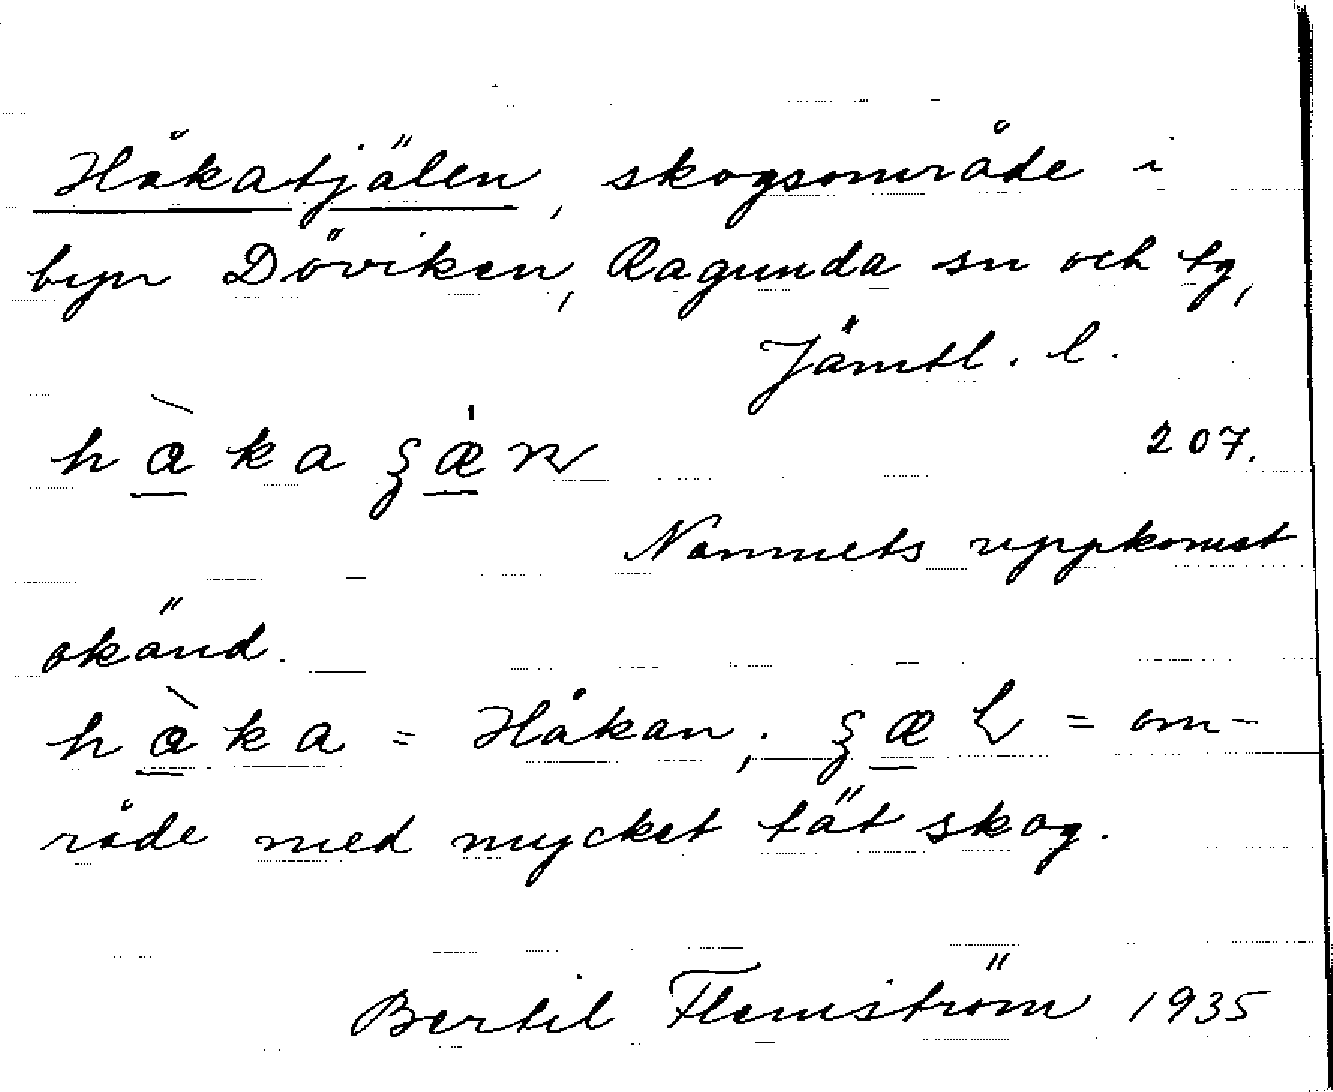 Håkatjälen, skogsområde i
byn Döviken, Ragunda sn och tg,
Jämtl. l.
hàka
207.
Namnets uppkomst
okänd.
hàka = Håkan; = om-
råde med mycket tät skog.
Bertil Flemström 1935